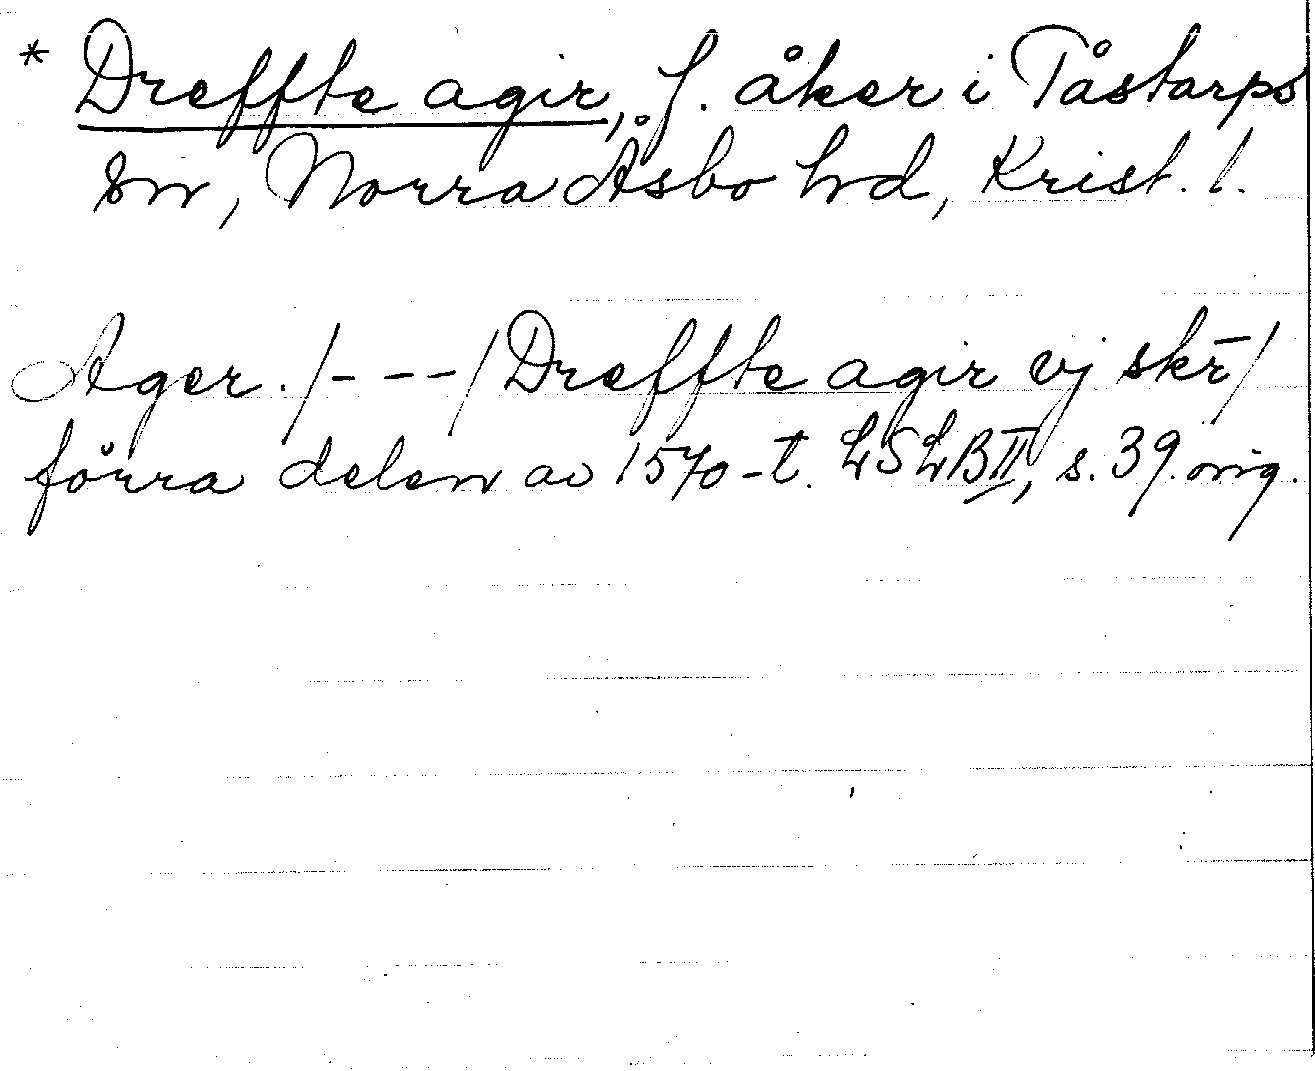 * Dreffte agir, f. åker i Tåstarps
sn, Norra Åsbo hd, Krist. l.
Ager. /- - -/ Dreffte agir vj skr̄/
förra delen av 1570-t. LSLB II, s. 39. orig.